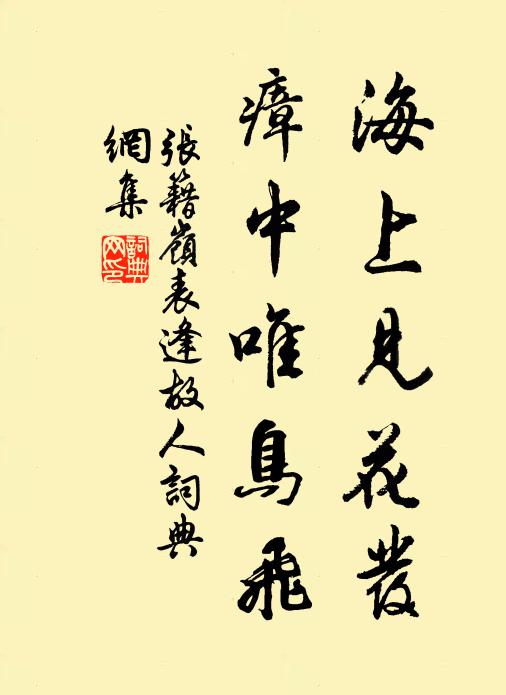 海上見花發
瘴中唯鳥飛
張籍嶺表逢故人詞典
網集
詞典
网印